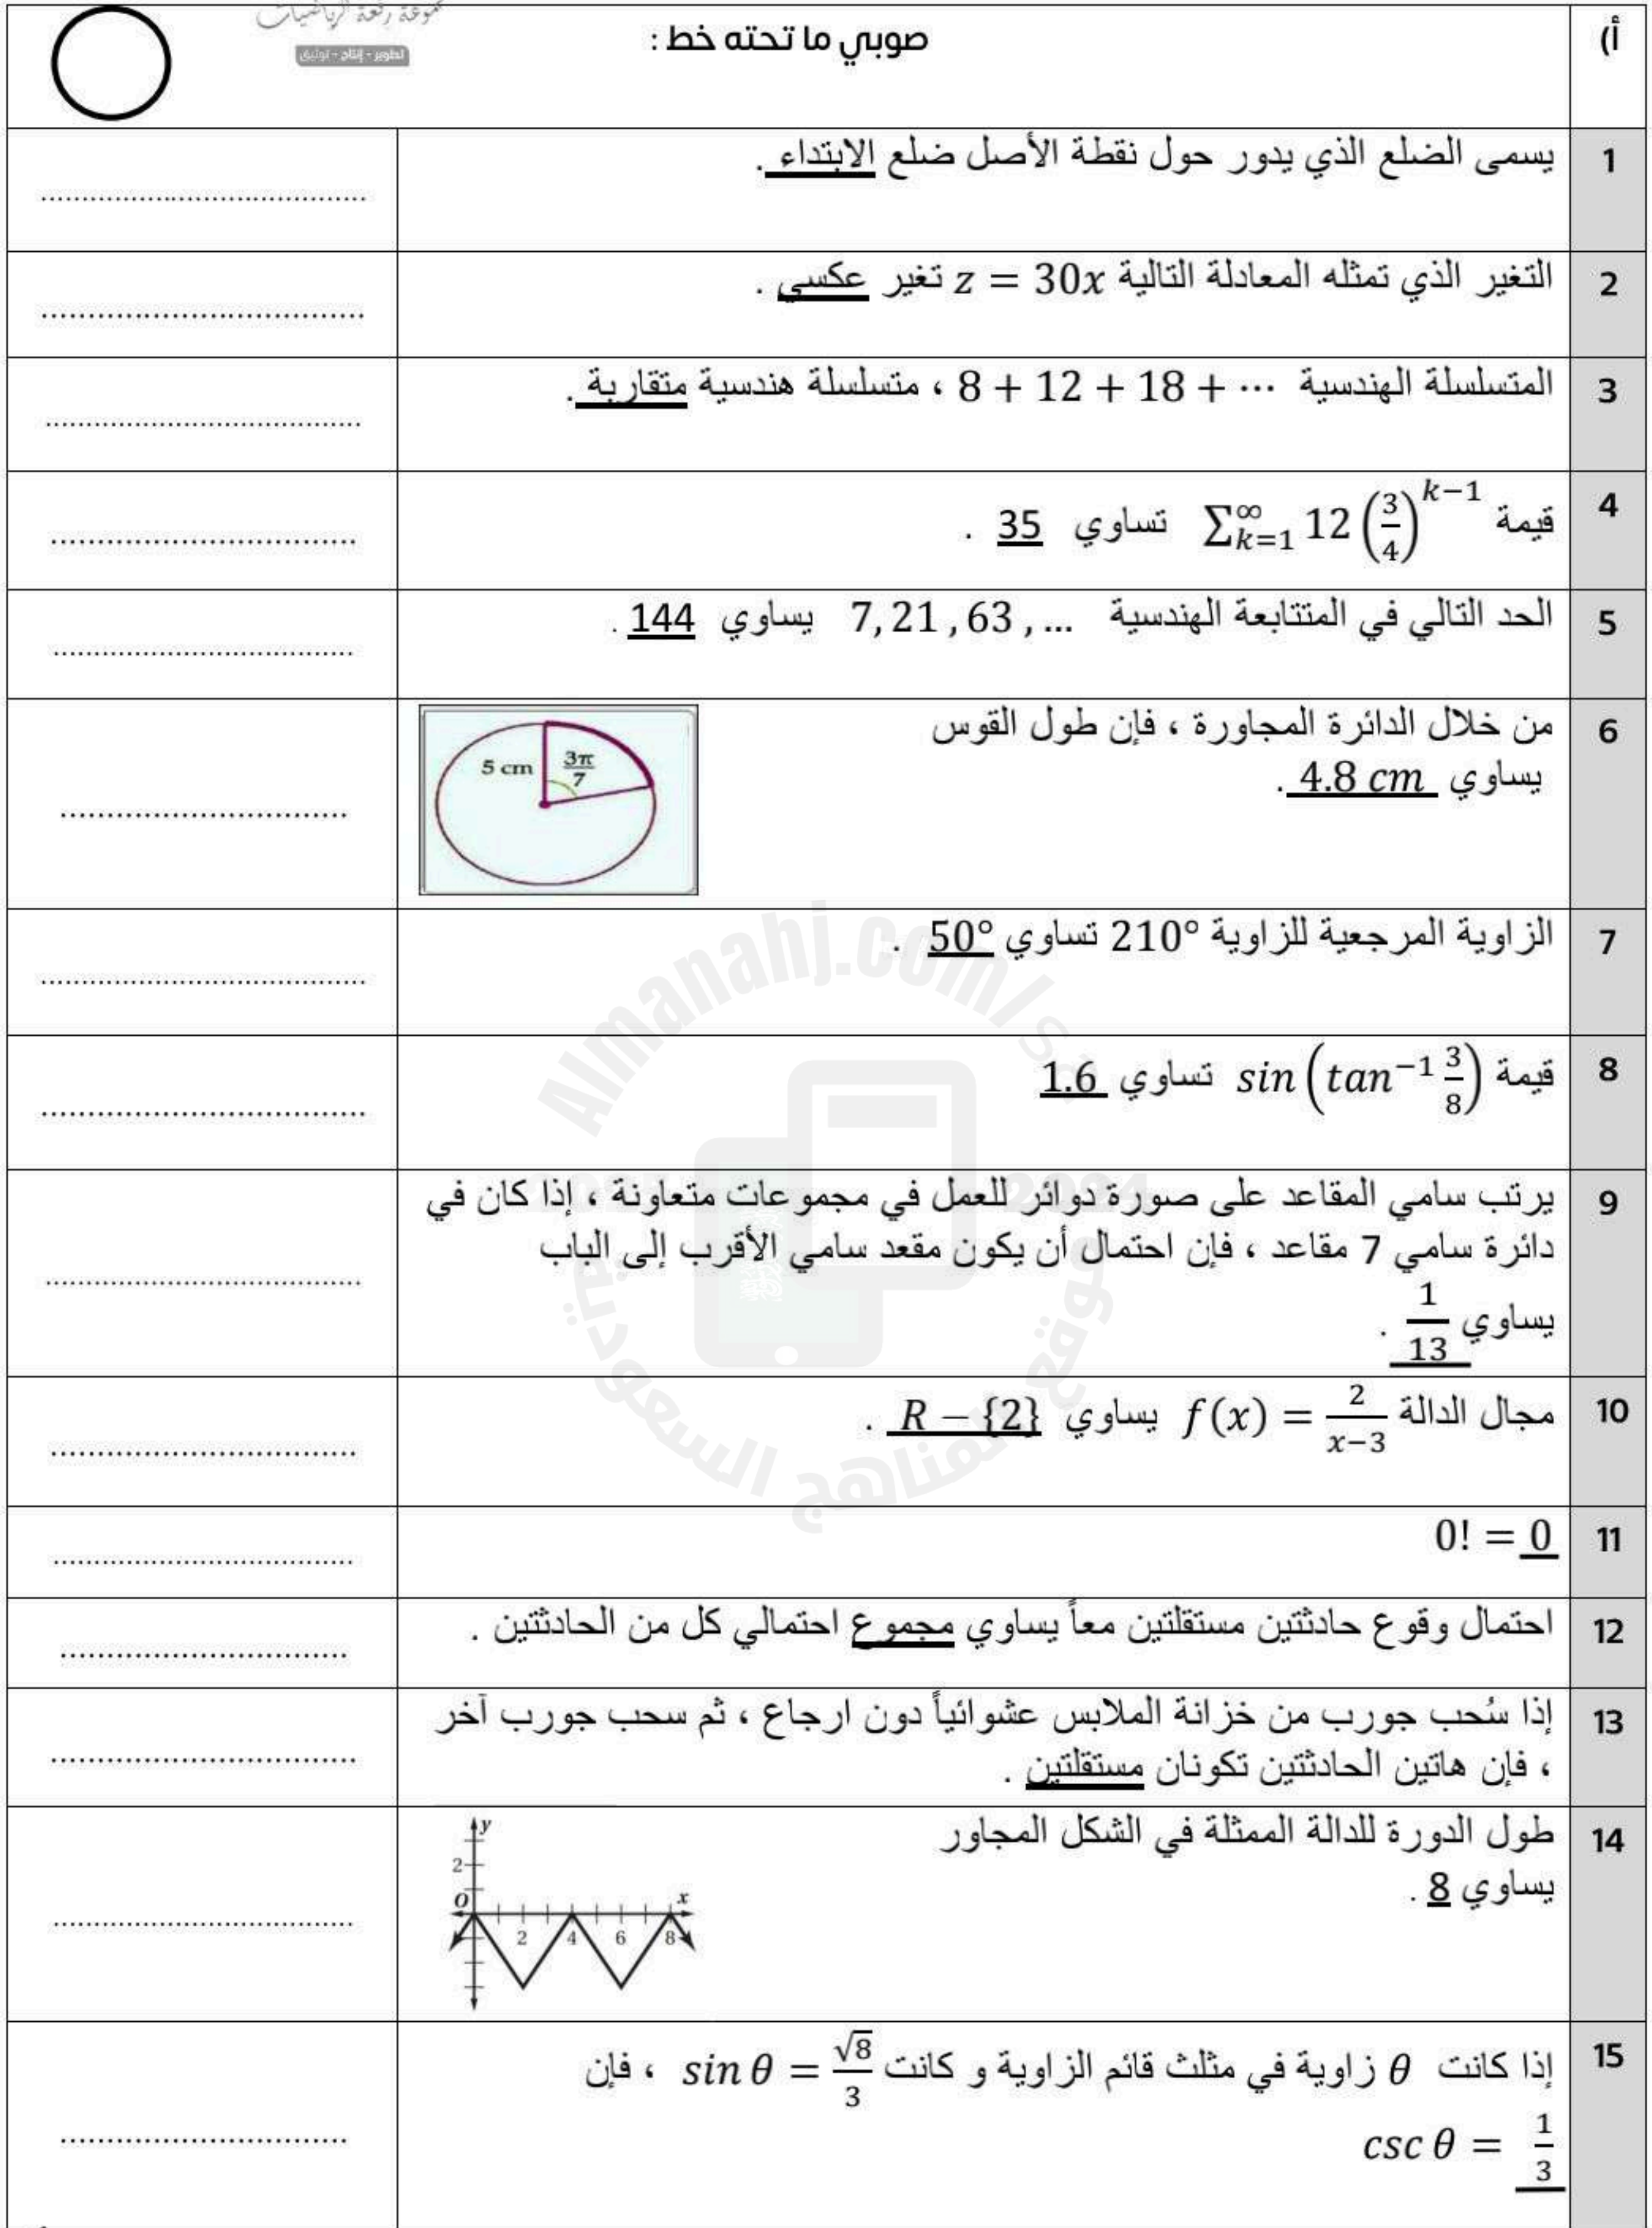 أ) صوبي ما تحته خط :
تطوير - إنتاج - توثيق
1 يسمى الضلع الذي يدور حول نقطة الأصل ضلع الابتداء .
.......................................
2 التغير الذي تمثله المعادلة التالية z = 30x تغير عكسي .
.......................................
3 المتسلسلة الهندسية 8 + 12 + 18 + ⋯ ، متسلسلة هندسية متقاربة .
.......................................
4 قيمة ∑_{k=1}^{∞} 12 (3/4)^{k−1} تساوي 35 .
.......................................
5 الحد التالي في المتتابعة الهندسية 7, 21 , 63 , ... يساوي 144 .
.......................................
6 من خلال الدائرة المجاورة ، فإن طول القوس
يساوي 4.8 cm .
5 cm 3π/7
.......................................
7 الزاوية المرجعية للزاوية 210° تساوي 50° .
.......................................
8 قيمة sin (tan⁻¹ 3/8) تساوي 1.6
.......................................
9 يرتب سامي المقاعد على صورة دوائر للعمل في مجموعات متعاونة ، إذا كان في
دائرة سامي 7 مقاعد ، فإن احتمال أن يكون مقعد سامي الأقرب إلى الباب
يساوي 1/13 .
.......................................
10 مجال الدالة f(x) = 2/(x−3) يساوي R − {2} .
.......................................
11 0! = 0
.......................................
12 احتمال وقوع حادثتين مستقلتين معاً يساوي مجموع احتمالي كل من الحادثتين .
.......................................
13 إذا سُحب جورب من خزانة الملابس عشوائياً دون ارجاع ، ثم سحب جورب آخر
، فإن هاتين الحادثتين تكونان مستقلتين .
.......................................
14 طول الدورة للدالة الممثلة في الشكل المجاور
يساوي 8 .
y
2
O x
2 4 6 8
.......................................
15 إذا كانت θ زاوية في مثلث قائم الزاوية و كانت sin θ = √8/3 ، فإن
csc θ = 1/3
.......................................
Almanahj.com/s
موقع المناهج السعودية